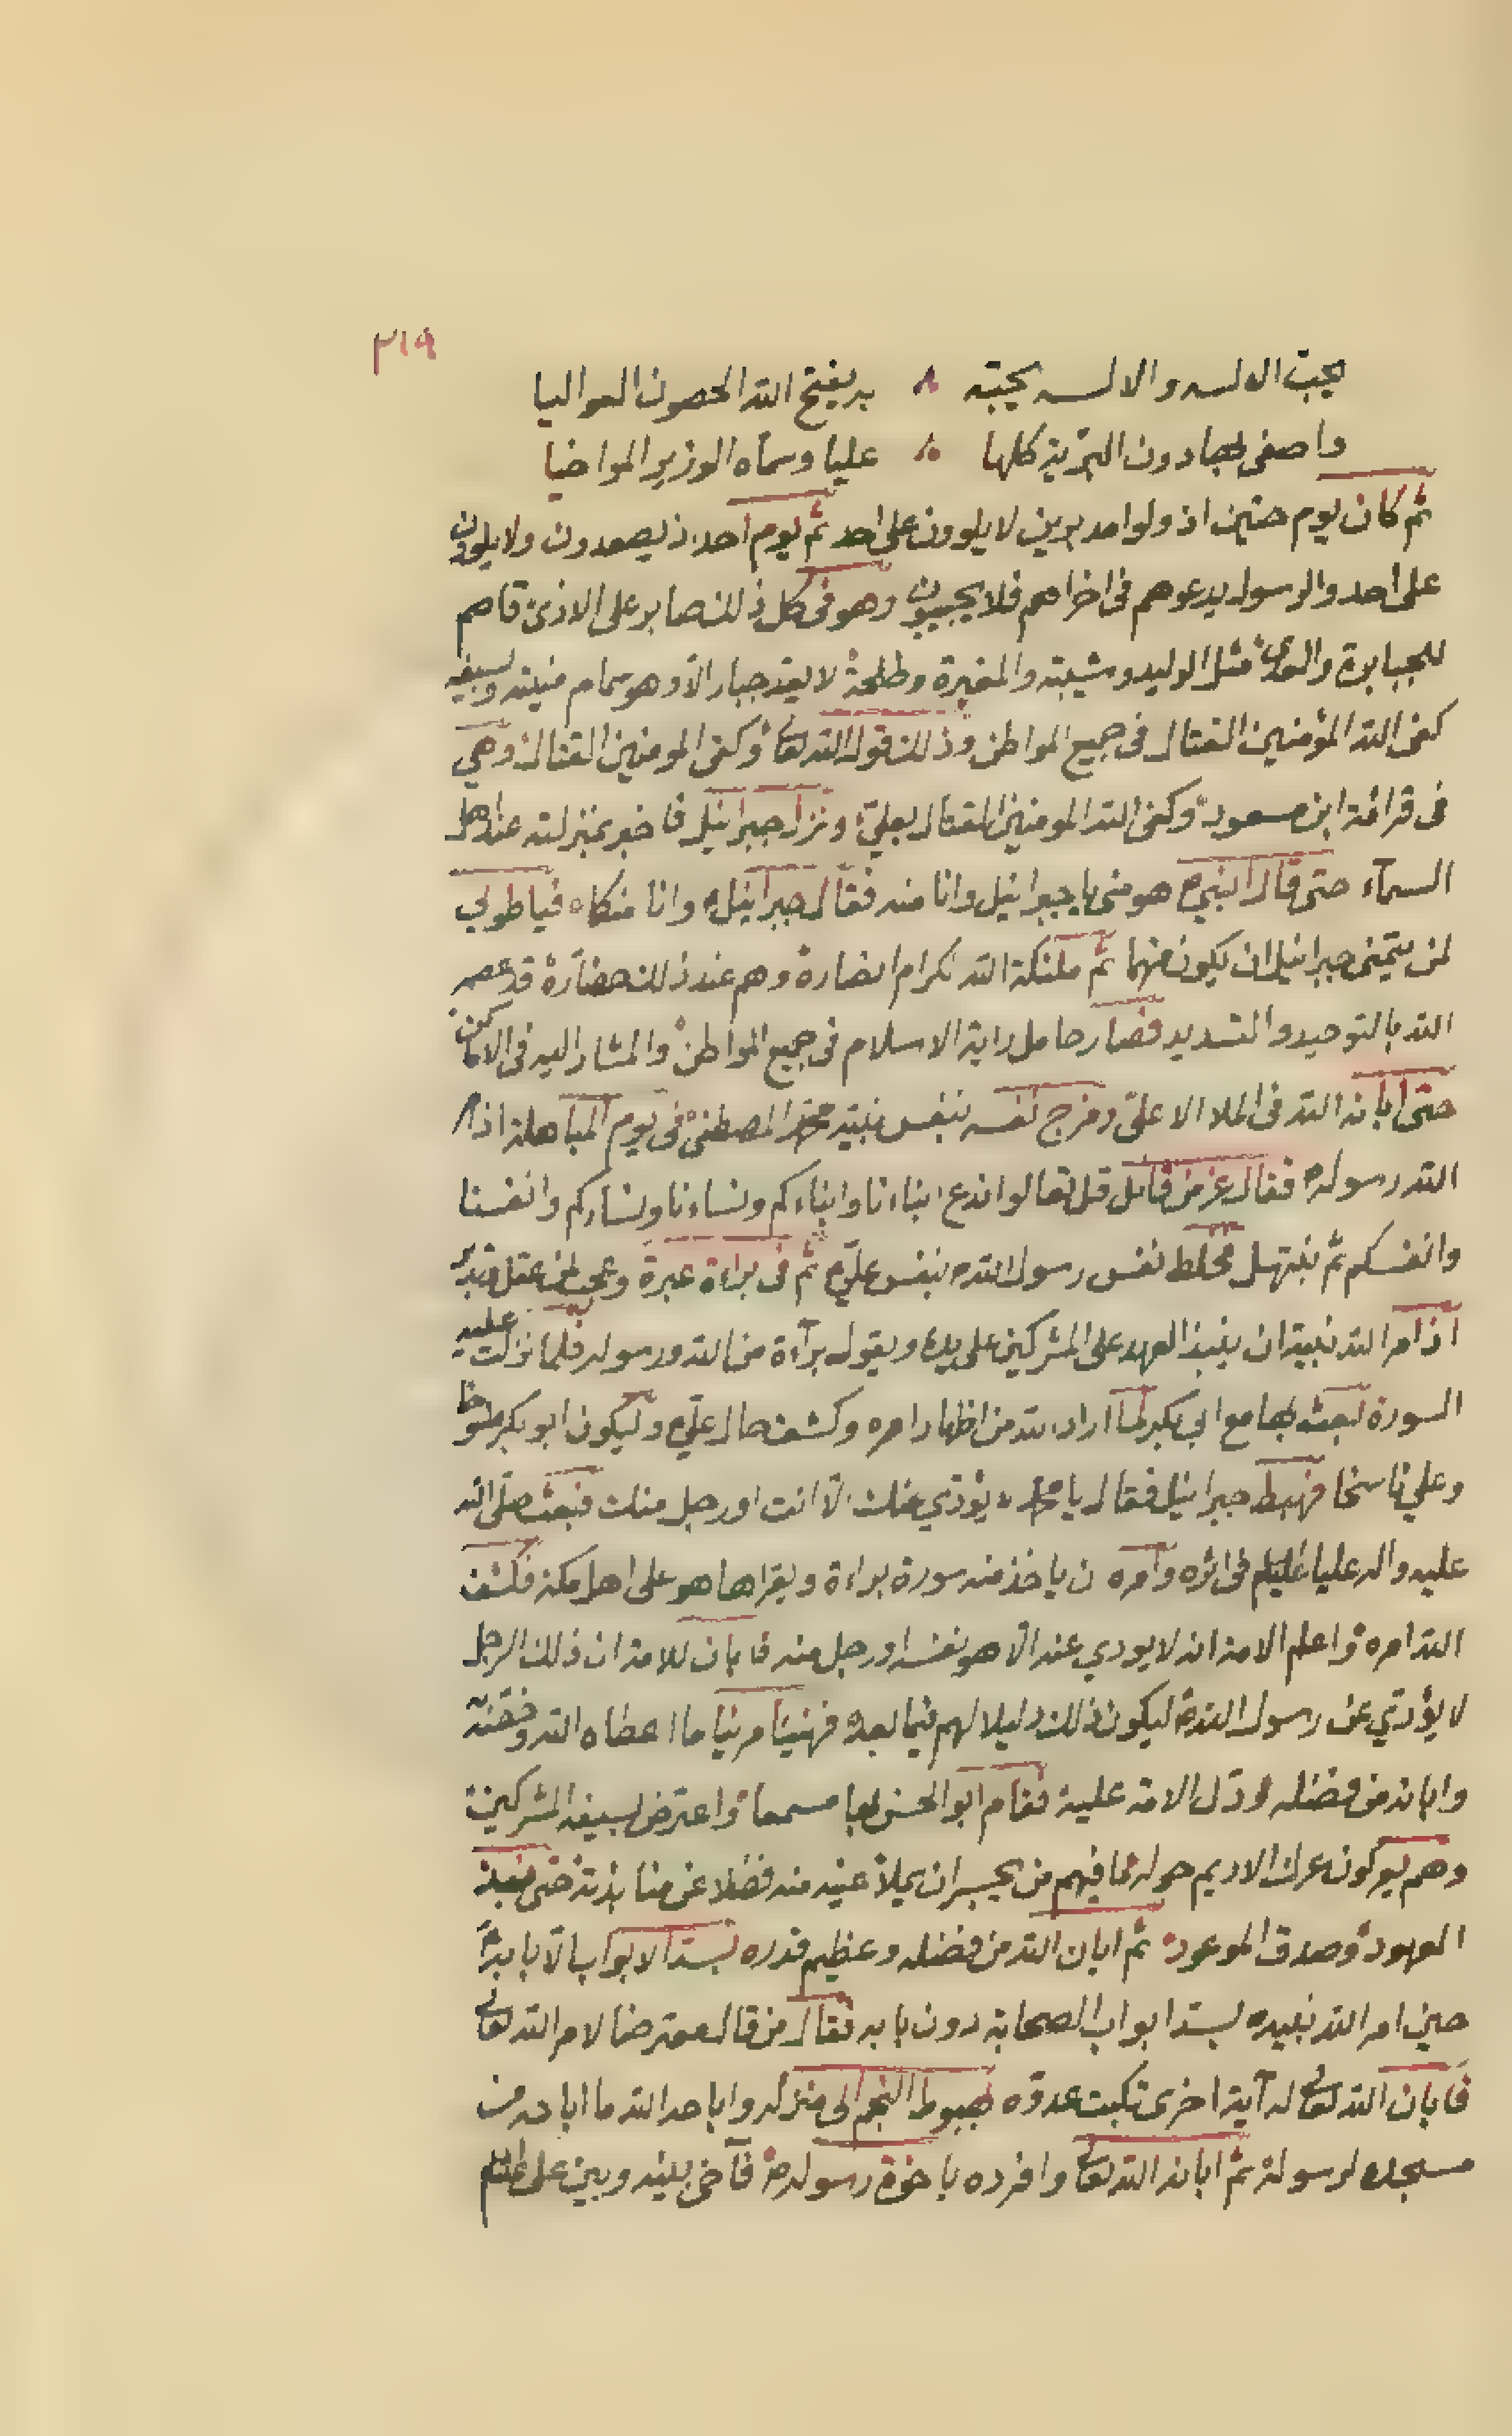 ٣١٩
يحب الاله والاله يحبه ٨ به يفتح الله الحصون العواليا
واصفى لها دون البرية كلها ٨ عليا وسماه الوزير المواخيا
ثم كان يوم حنين اذ ولوا مدبرين لا يلوون على احد ثم يوم احد اذ يصعدون ولا يلوون
على احد والرسول يدعوهم فى اخراهم فلا يجيبون وهو فى كل ذلك صابر على الاذى قاصم
للجبابرة مثل الوليد وشيبة والمغيرة وطلحة لا يعد جبار الا وهو سمام منيته وبسيفه
كفى الله المؤمنين القتال فى جميع المواطن وذلك قول الله تعا وكفى المومنين القتال وهي
فى قرائة ابن مسعود وكفى الله المومنين القتال بعلي ونزل جبرائيل فاخبر بمنزلته عند اهل
السمآء حتى قال النبي ص هو منى يا جبرائيل وانا منه فقال جبرائيل وانا منكما فيا طوبى
لمن يتمنى جبرائيل ان يكون منهما ثم ملئكة الله الكرام انصاره وهم عند ذلك حضاره قد عصمه
الله بالتوحيد والتسديد فصار حامل راية الاسلام فى جميع المواطن والمشار اليه فى الاماكن
حتى ابانه الله فى الملا الاعلى ومزج نفسه بنفس نبيه محمد المصطفى فى يوم المباهلة اذ امر
الله رسوله فقال عز من قائل قل تعالوا ندع ابناءنا وابناءكم ونساءنا ونساءكم وانفسنا
وانفسكم ثم نبتهل فخلط نفس رسول الله ص بنفس علي ثم فى براءة عبرة وعجب لمن عقل وتدبر
اذ امر الله نبيه ان ينبذ العهد على المشركين على يده ويقول برآءة من الله ورسوله فلما نزلت عليه
السورة بعث بها مع ابى بكر لما اراد الله من اظهار امره وكشف حال علي وليكون ابو بكر منسوخا
وعلي ناسخا فهبط جبرائيل فقال يا محمد لا يؤدي عنك الا انت او رجل منك فبعث صلى الله
عليه واله عليا عليلم فى اثره وامره ان ياخذ منه سورة براءة ويقراها هو على اهل مكة فكشف
الله امره واعلم الامة انه لا يودي عنه الا هو نفسه او رجل منه فابان للامة ان ذلك الرجل
لا يؤدي عن رسول الله ليكون ذلك دليلا لهم فيما بعده فهنيئا مريئا ما اعطاه الله وفضله
وابانه من فضله ودل الامة عليه فقام ابو الحسن بها مسمعا واعترض بسيفه المشركين
وهم يعركون عرك الاديم حوله فما فيهم من يجسر ان يملأ عينيه منه فضلا عن منابذته حتى نبذ
العهود وصدق الموعود ثم ابان الله من فضله وعظيم قدره بسد الابواب الا بابه
حين امر الله نبيه بسد ابواب الصحابة دون بابه فقال من قال معترضا لامر الله تعا
فابان الله تعا له آية اخرى تكبت عدوه لهبوط النجم الى منزله واباحه الله ما اباحه من
مسجده لرسوله ثم ابانه الله تعا وافرده باخوة رسوله فآخى بينه وبين على عليلم